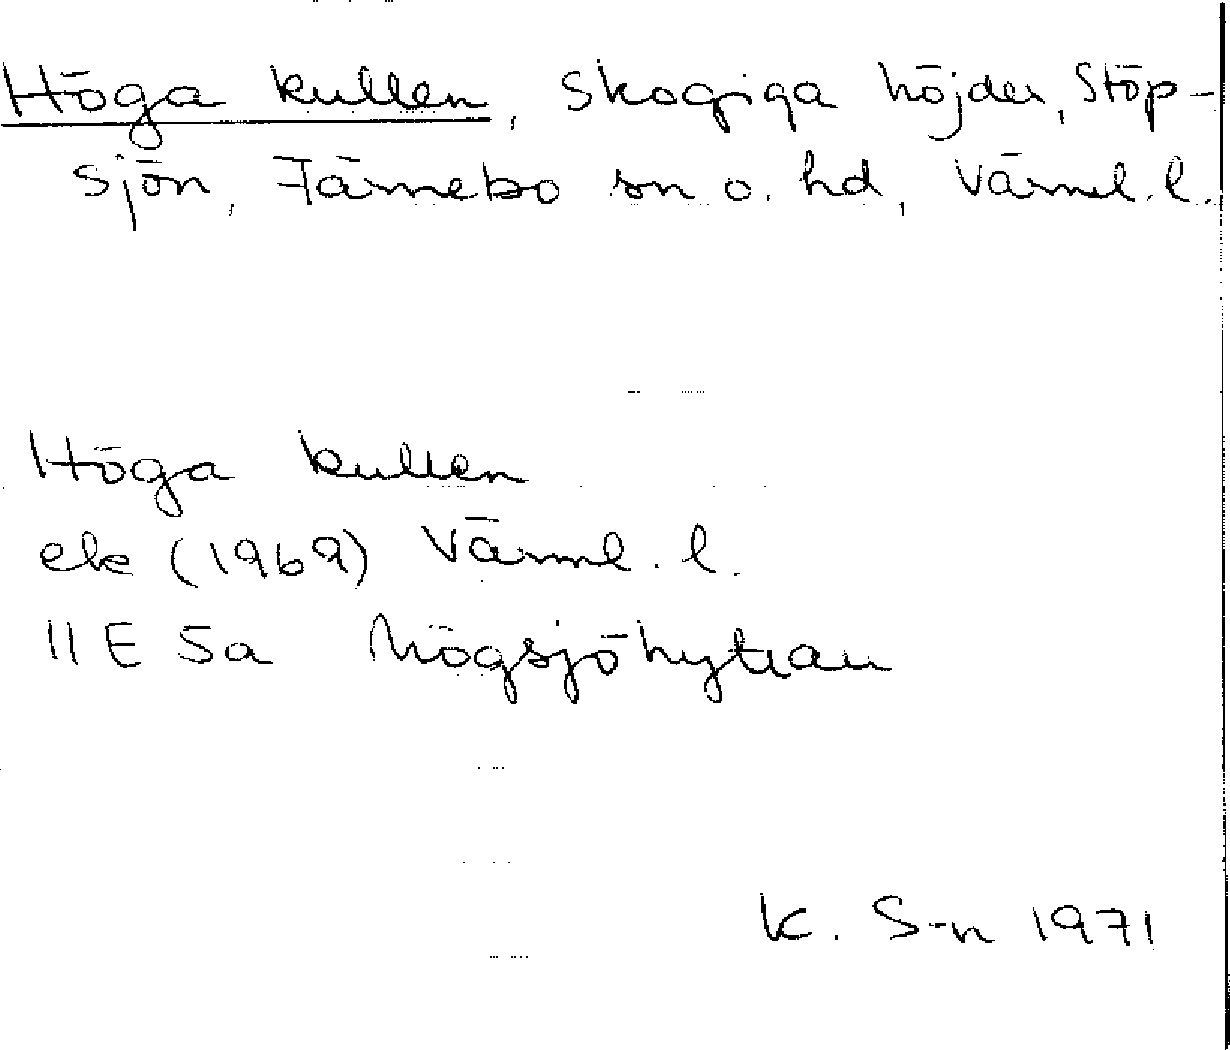 Höga kullen, skogiga höjder, Stöp-
sjön, Färnebo sn o. hd, Värml. l.
Höga kullen
ek (1969) Värml. l.
11 E 5a Mögsjöhyttan
K. S-n 1971